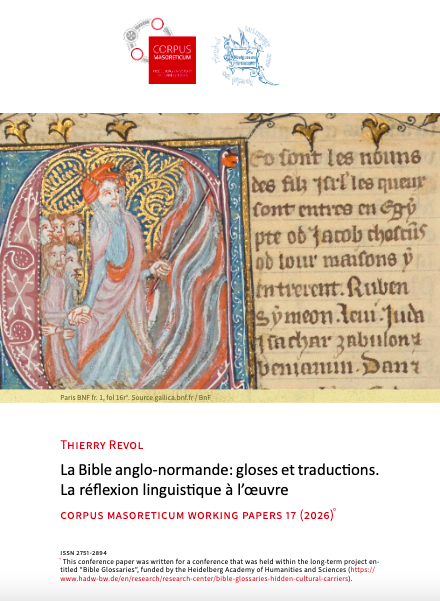 CORPUS
MASORETICUM
Ço sont les nouns
des filz Jsrl les queux
sont entres en Egy
pte od Jacob chascūs
od lour maisons y
entrerent. Ruben
Symeon. leui. Juda
Jsachar zabulon ⁊
beniamin. Dan ⁊
Paris BNF fr. 1, fol 16rᵃ. Source gallica.bnf.fr / BnF
THIERRY REVOL
La Bible anglo-normande: gloses et traductions.
La réflexion linguistique à l’œuvre
CORPUS MASORETICUM WORKING PAPERS 17 (2026)*
ISSN 2751-2894
* This conference paper was written for a conference that was held within the long-term project en-
titled "Bible Glossaries", funded by the Heidelberg Academy of Humanities and Sciences (https://
www.hadw-bw.de/en/research/research-center/bible-glossaries-hidden-cultural-carriers).